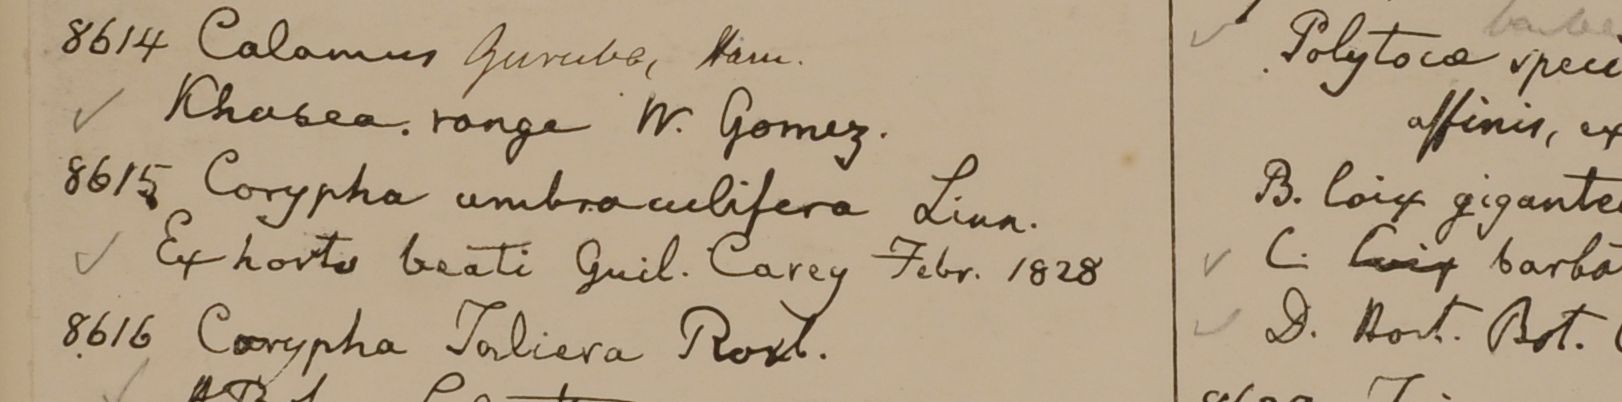 8614 Calamus Guruba, Ham.
Khasea. range W. Gomez.
8615 Corypha umbraculifera Linn.
Ex horto beati Guil. Carey Febr. 1828
8616 Corypha Taliera Roxb.
Polytoca speci
affinis, ex
B. Coix gigante
C. Coix barba
D. Hort. Bot. C